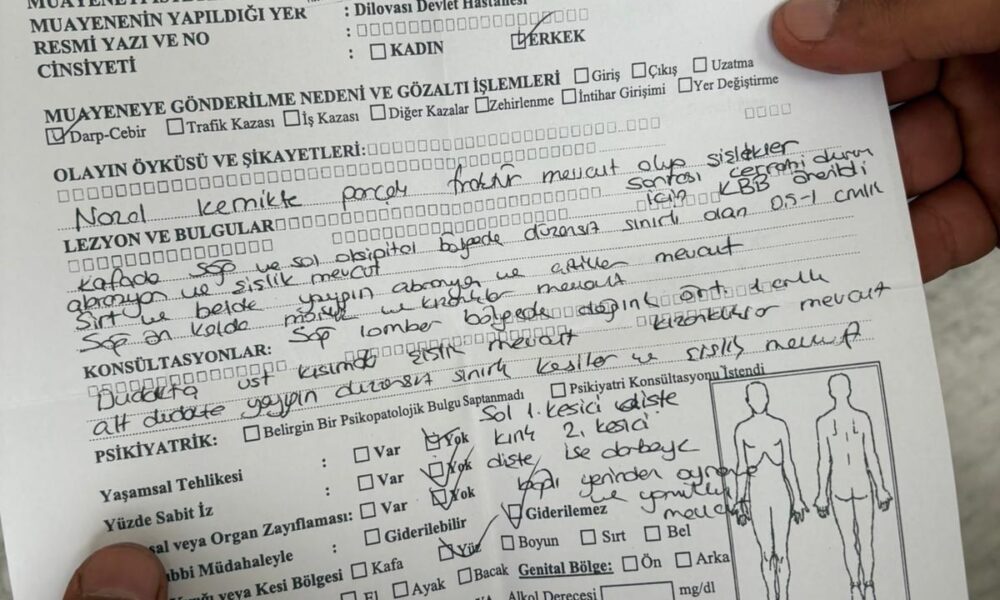 MUAYENENİN YAPILDIĞI YER : Dilovası Devlet Hastanesi
RESMİ YAZI VE NO :
CİNSİYETİ : KADIN ERKEK
MUAYENEYE GÖNDERİLME NEDENİ VE GÖZALTI İŞLEMLERİ Giriş Çıkış Uzatma
Darp-Cebir Trafik Kazası İş Kazası Diğer Kazalar Zehirlenme İntihar Girişimi Yer Değiştirme
OLAYIN ÖYKÜSÜ VE ŞİKAYETLERİ:
Nazal kemikte parçalı fraktür mevcut olup şişlikler
sonrası cerrahi durum
LEZYON VE BULGULAR için KBB önerildi
kafada sağ ve sol oksipital bölgede düzensiz sınırlı olan 0.5-1 cmlik
abrazyon ve şişlik mevcut
Sırt ve belde yaygın abrazyon ve mevcut
Sağ ön kolda ve kızarıklıklar mevcut
KONSÜLTASYONLAR: Sağ lomber bölgede dağınık
kızarıklıklar mevcut
Dudakta üst kısımda şişlik mevcut
alt dudakta yaygın düzensiz sınırlı kesiler ve şişlik mevcut
PSİKİYATRİK: Belirgin Bir Psikopatolojik Bulgu Saptanmadı Psikiyatri Konsültasyonu İstendi
Sol 1. kesici dişte
Yaşamsal Tehlikesi : Var Yok kırık 2. kesici
Yüzde Sabit İz : Var Yok dişte ise darbeye
sal veya Organ Zayıflaması: Var Yok bağlı yerinden
ıbbi Müdahaleyle : Giderilebilir Giderilemez ve mevcut
veya Kesi Bölgesi Kafa Yüz Boyun Sırt Bel
El Ayak Bacak Genital Bölge: Ön Arka
Alkol Derecesi mg/dl